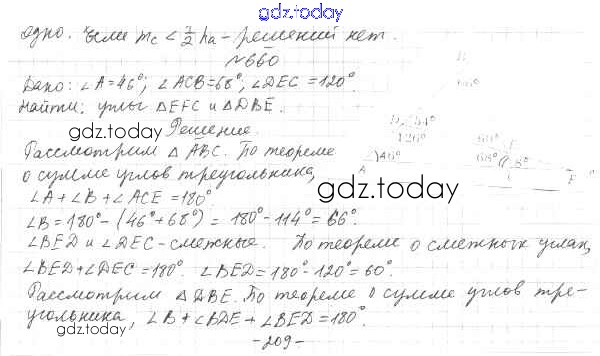 gdz.today
одно. Если mc < 1/2 ha - решений нет.
№660
Дано: ∠A=46°; ∠ACB=68°; ∠DEC=120°.
Найти: углы △EFC и △DBE.
gdz.today
Решение.
Рассмотрим △ABC. По теореме
о сумме углов треугольника,
gdz.today
∠A+∠B+∠ACE=180°.
∠B=180°-(46°+68°)=180°-114°=66°
∠BED и ∠DEC-смежные. По теореме о смежных углах,
∠BED+∠DEC=180°. ∠BED=180°-120°=60°.
Рассмотрим △DBE. По теореме о сумме углов тре-
угольника, ∠B+∠BDE+∠BED=180°.
gdz.today
-209-
B
66°
D 54°
126°
60°
A 46°
68°
C
F